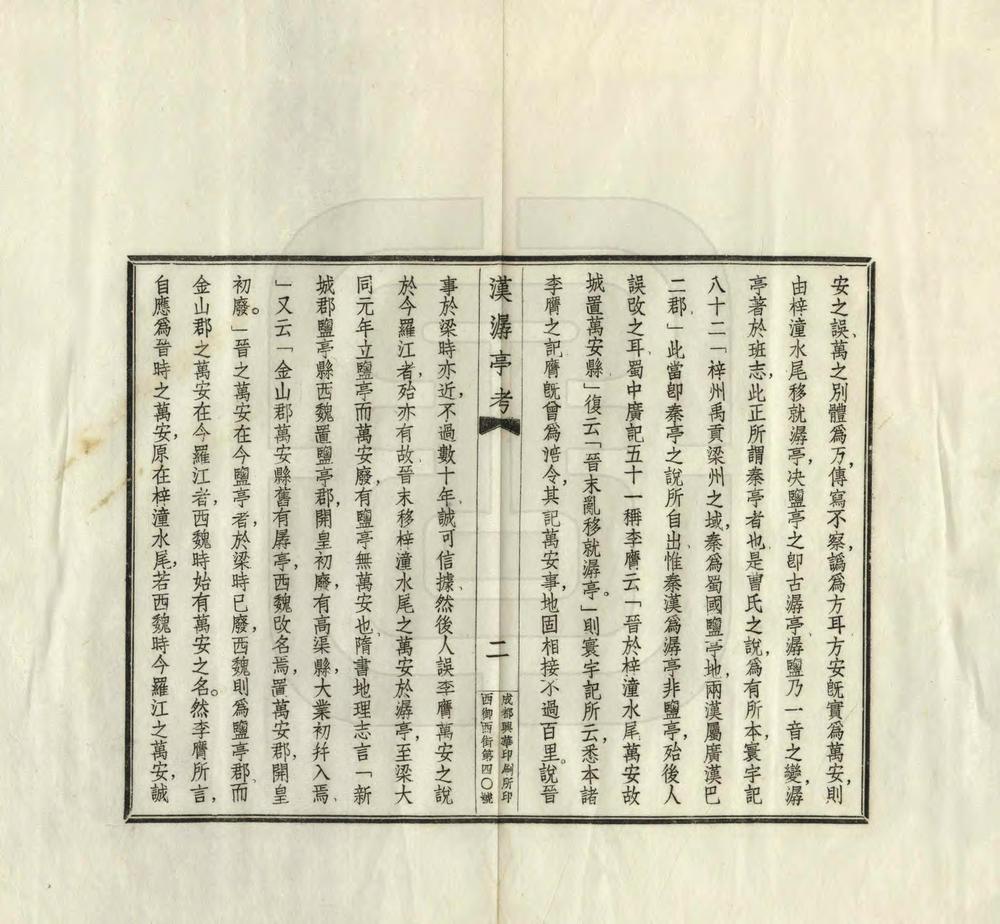 安之誤、萬之別體爲万，傳寫不察，譌爲方耳方安旣實爲萬安，則
由梓潼水尾移就潺亭，決鹽亭之卽古潺亭、潺鹽乃一音之變，潺
亭著於班志，此正所謂秦亭者也、是曹氏之說，爲有所本，寰宇記
八十二「梓州禹貢梁州之域，秦爲蜀國鹽亭地，兩漢屬廣漢巴
二郡、」此當卽秦亭之說所自出、惟秦漢爲潺亭非鹽亭，殆後人
誤改之耳、蜀中廣記五十一稱李膺云「晉於梓潼水尾萬安故
城置萬安縣」復云「晉末亂移就潺亭。」則寰宇記所云悉本諸
李膺之記，膺旣曾爲涪令，其記萬安事，地固相接，不過百里。說晉
漢潺亭考
二
成都興華印刷所印
西御西街第四〇號
事於梁時亦近，不過數十年、誠可信據、然後人誤李膺萬安之說
於今羅江者，殆亦有故、晉末移梓潼水尾之萬安於潺亭，至梁大
同元年立鹽亭而萬安廢，有鹽亭無萬安也、隋書地理志言「新
城郡鹽亭縣西魏置鹽亭郡，開皇初廢，有高渠縣，大業初幷入焉、
」又云「金山郡萬安縣舊有孱亭，西魏改名焉，置萬安郡，開皇
初廢。」晉之萬安在今鹽亭者，於梁時已廢，西魏則爲鹽亭郡、而
金山郡之萬安在今羅江者，西魏時始有萬安之名。然李膺所言，
自應爲晉時之萬安，原在梓潼水尾，若西魏時今羅江之萬安，誠